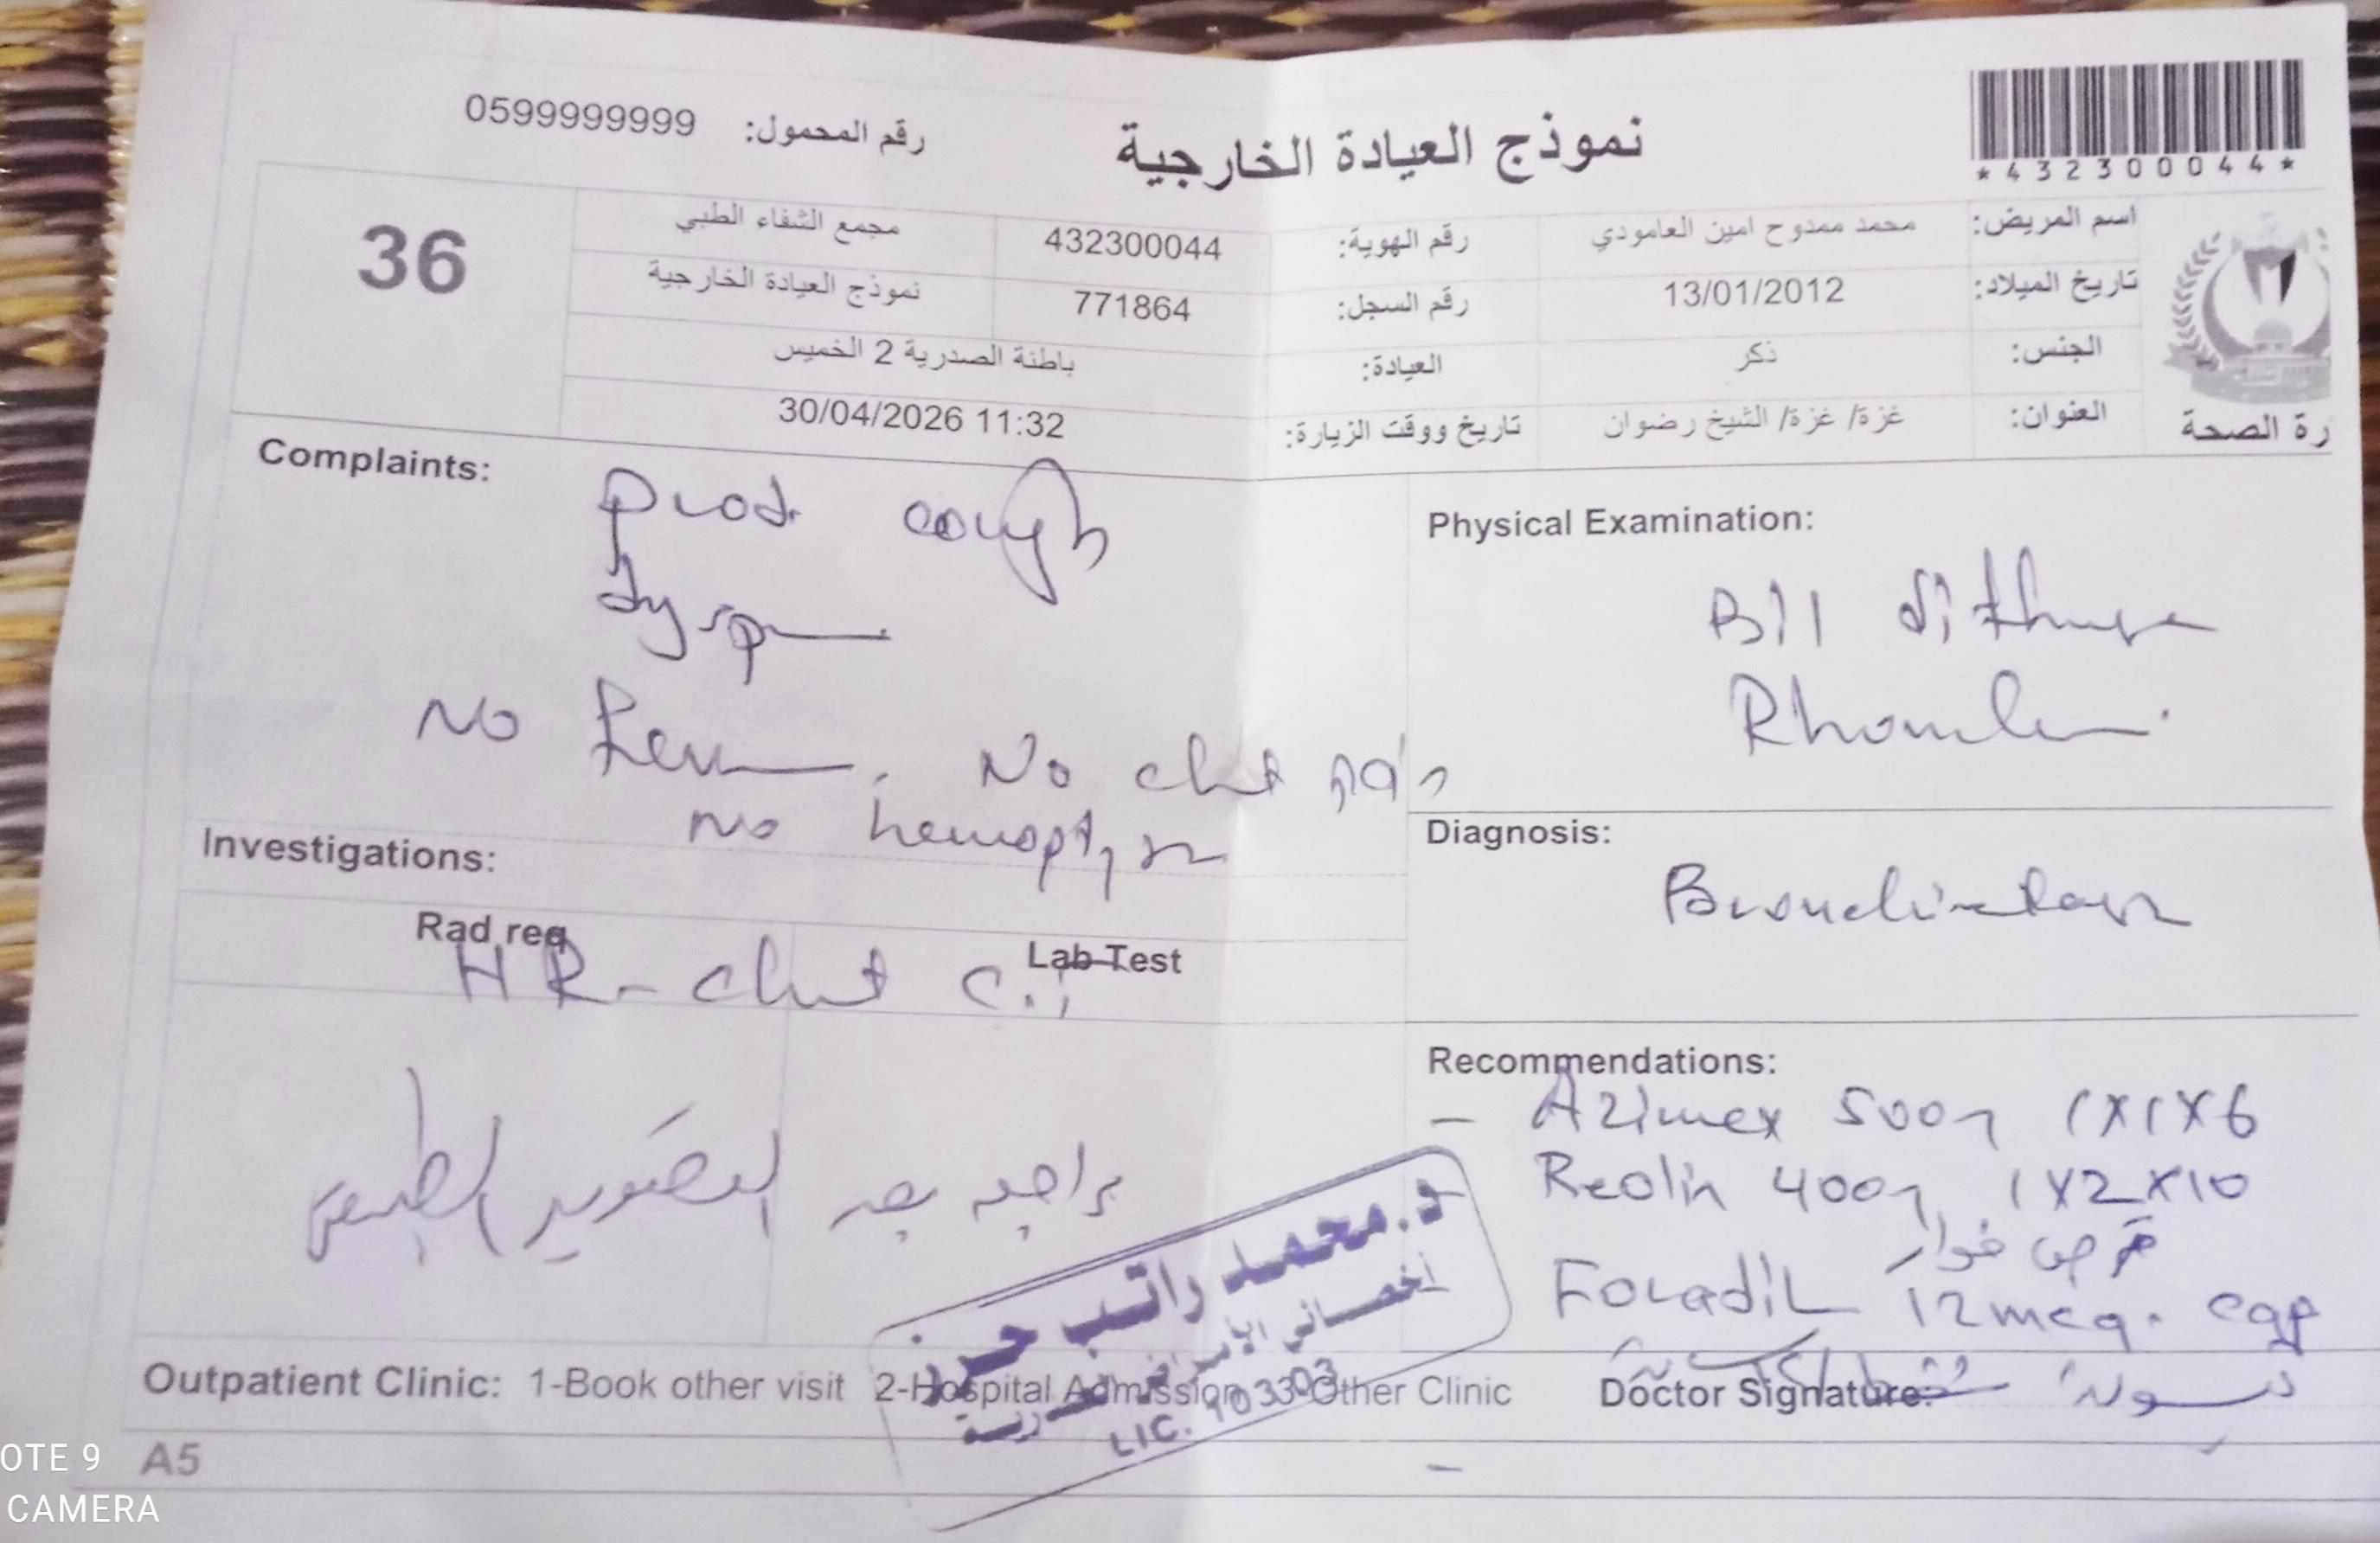 *432300044*
نموذج العيادة الخارجية
رقم المحمول: 0599999999
اسم المريض: محمد ممدوح امين العامودي رقم الهوية: 432300044 مجمع الشفاء الطبي
36
تاريخ الميلاد: 13/01/2012 رقم السجل: 771864 نموذج العيادة الخارجية
الجنس: ذكر العيادة: باطنة الصدرية 2 الخميس
العنوان: غزة/ غزة/ الشيخ رضوان تاريخ ووقت الزيارة: 30/04/2026 11:32
رة الصحة
Complaints:
prod. cough
No No chest pain
No hemoptysis
Physical Examination:
Bil
Diagnosis:
Investigations:
Rad req
Lab Test
HR- chest
يراجع بعد التصوير الطبقي
Recommendations:
- Azimex 500 1x1x6
Reolin 400 1x2x10
قرص فوار
Foradil 12mcg. cap
د. محمد راتب حرز
اخصائي الأمراض الصدرية
LIC. 103303
Outpatient Clinic: 1-Book other visit 2-Hospital Admission 3-Other Clinic
Doctor Signature:
A5
OTE 9
CAMERA